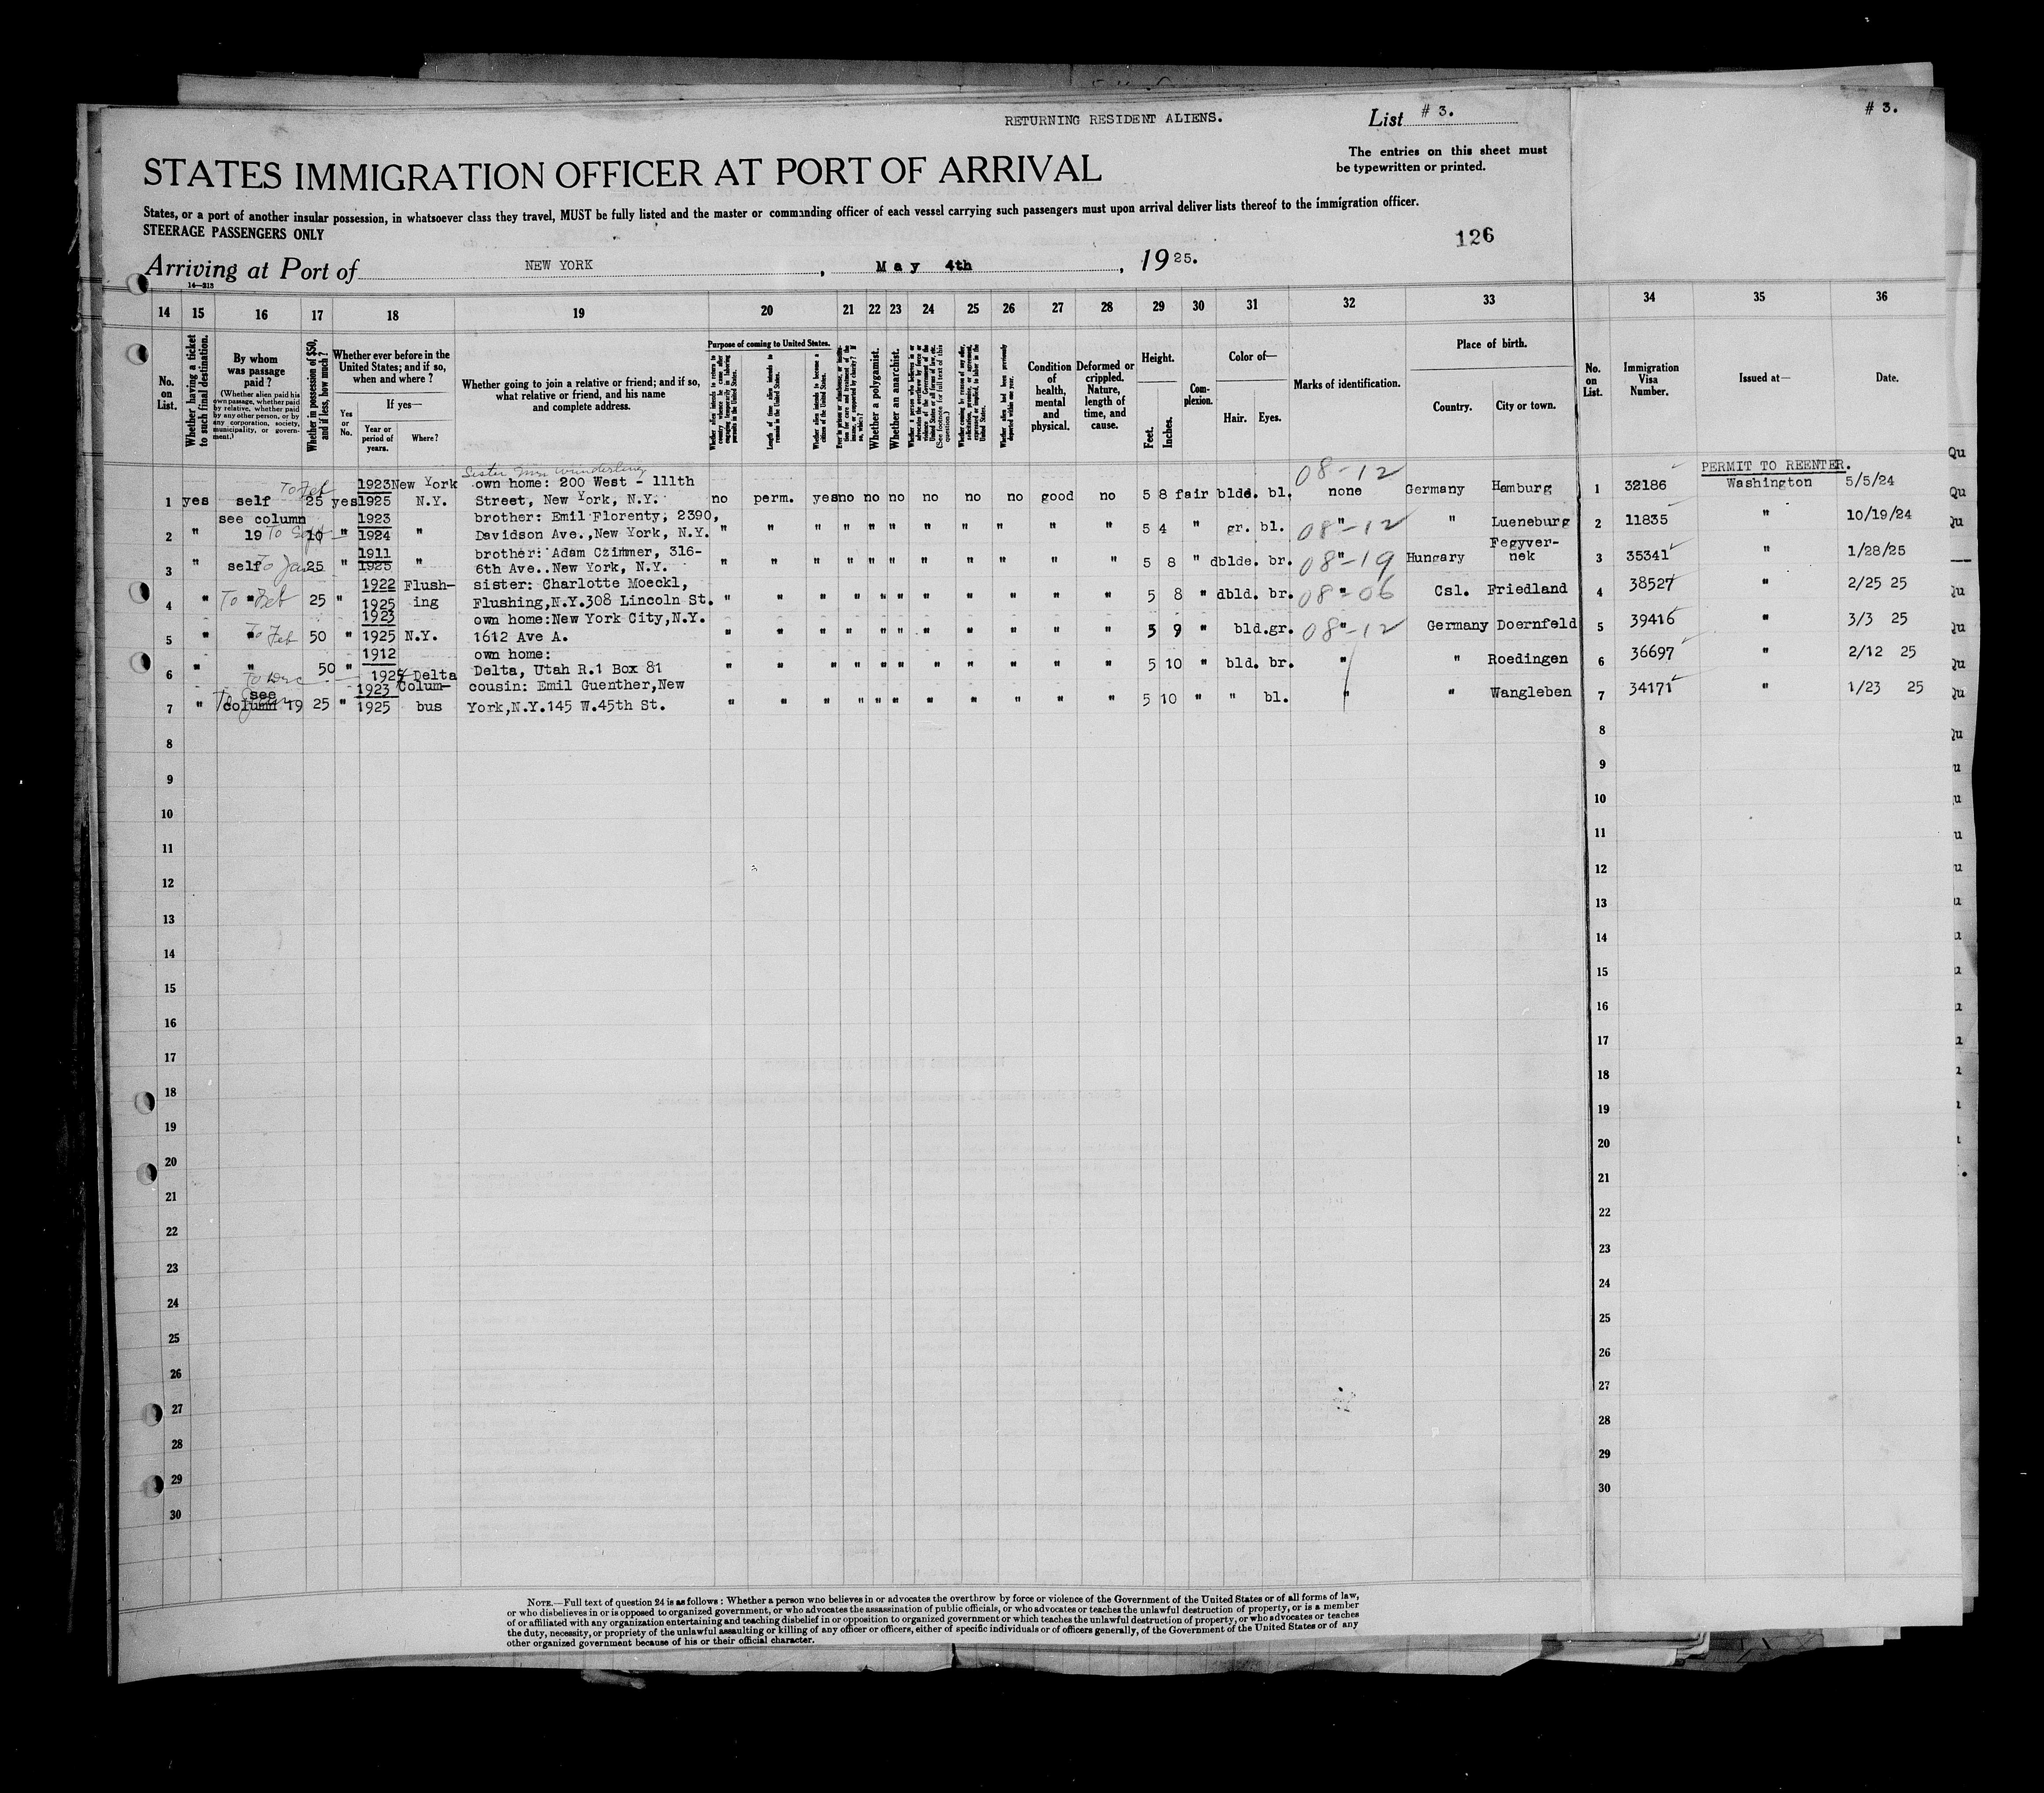 RETURNING RESIDENT ALIENS.
List # 3.
# 3.
The entries on this sheet must
be typewritten or printed.
STATES IMMIGRATION OFFICER AT PORT OF ARRIVAL
States, or a port of another insular possession, in whatsoever class they travel, MUST be fully listed and the master or commanding officer of each vessel carrying such passengers must upon arrival deliver lists thereof to the immigration officer.
STEERAGE PASSENGERS ONLY
126
Arriving at Port of NEW YORK, May 4th, 1925.
14—213
14 15 16 17 18 19 20 21 22 23 24 25 26 27 28 29 30 31 32 33 34 35 36
No. on List.
Whether having a ticket to such final destination.
By whom was passage paid?
(Whether alien paid his own passage, whether paid by relative, whether paid by any other person, or by any corporation, society, municipality, or government.)
Whether in possession of $50, and if less, how much?
Whether ever before in the United States; and if so, when and where?
Yes or No.
If yes—
Year or period of years.
Where?
Whether going to join a relative or friend; and if so, what relative or friend, and his name and complete address.
Purpose of coming to United States.
Length of time alien intends to remain in the United States.
Whether alien intends to become a citizen of the United States.
Whether a polygamist.
Whether an anarchist.
(See footnote for full text of this question.)
Whether alien had been previously deported within one year.
Condition of health, mental and physical.
Deformed or crippled. Nature, length of time, and cause.
Height.
Feet. Inches.
Complexion.
Color of—
Hair. Eyes.
Marks of identification.
Place of birth.
Country. City or town.
No. on List.
Immigration Visa Number.
Issued at—
Date.
PERMIT TO REENTER.
Sister Mrs Wunderling
08-12
1923 New York own home: 200 West - 111th
1 yes self To Feb 25 yes 1925 N.Y. Street, New York, N.Y. no perm. yes no no no no no no good no 5 8 fair blde. bl. none Germany Hamburg 1 32186 Washington 5/5/24
see column 1923 brother: Emil Florenty, 2390,
2 " 19 To Sept 10 " 1924 " Davidson Ave.,New York, N.Y. " " " " " " " " " " " 5 4 " gr. bl. " 08-12 " Lueneburg 2 11835 " 10/19/24
1911 brother: Adam Czimmer, 316- Fegyver-
3 " self To Jan 25 " 1925 " 6th Ave..New York, N.Y. " " " " " " " " " " " 5 8 " dblde. br. " 08-19 Hungary nek 3 35341 " 1/28/25
1922 Flush- sister: Charlotte Moeckl,
4 " " To Feb 25 " 1925 ing Flushing,N.Y.308 Lincoln St. " " " " " " " " " " " 5 8 " dbld. br. " 08-06 Csl. Friedland 4 38527 " 2/25 25
1923 own home:New York City,N.Y.
5 " " To Feb 50 " 1925 N.Y. 1612 Ave A. " " " " " " " " " " " 5 9 " bld.gr. " 08-12 Germany Doernfeld 5 39416 " 3/3 25
1912 own home:
6 " " To Dec 50 " 1925 Delta Delta, Utah R.1 Box 81 " " " " " " " " " " " 5 10 " bld. br. " " Roedingen 6 36697 " 2/12 25
see 1923 Colum- cousin: Emil Guenther,New
7 " column 19 25 " 1925 bus York,N.Y.145 W.45th St. " " " " " " " " " " " 5 10 " " bl. " " Wangleben 7 34171 " 1/23 25
8 8
9 9
10 10
11 11
12 12
13 13
14 14
15 15
16 16
17 17
18 18
19 19
20 20
21 21
22 22
23 23
24 24
25 25
26 26
27 27
28 28
29 29
30 30
NOTE.—Full text of question 24 is as follows: Whether a person who believes in or advocates the overthrow by force or violence of the Government of the United States or of all forms of law,
or who disbelieves in or is opposed to organized government, or who advocates the assassination of public officials, or who advocates or teaches the unlawful destruction of property, or is a member
of or affiliated with any organization entertaining and teaching disbelief in or opposition to organized government or which teaches the unlawful destruction of property, or who advocates or teaches
the duty, necessity, or propriety of the unlawful assaulting or killing of any officer or officers, either of specific individuals or of officers generally, of the Government of the United States or of any
other organized government because of his or their official character.